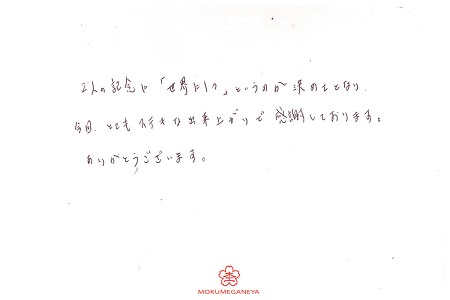 2人の記念に「世界に1つ」というのが決め手となり、
今回、とてもステキな出来上がりで感謝しております。
ありがとうございます。
MOKUMEGANEYA